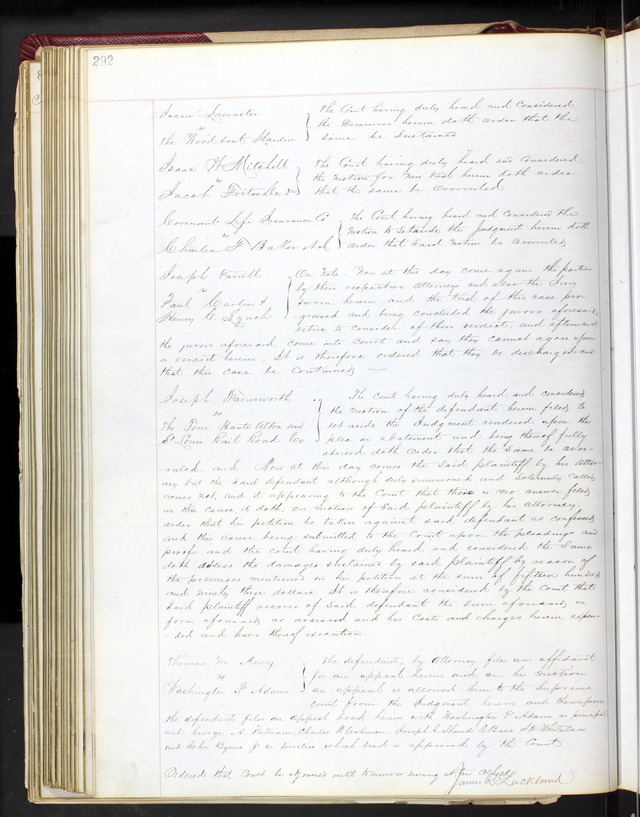 292
Isaac Lancaster
vs
the Wood boat Harden
the Court having duly heard and Considered
the Demurrer herein doth order that the
same be Sustained
Isaac W Mitchell
vs
Jacob Fritschle
the Court having duly heard and Considered
the motion for New trial herein doth order
that the same be overruled
Covenant Life Insurance Co
vs
Charles F Baker
the Court having heard and Considered the
motion to set aside the Judgment herein doth
order that said Motion be overruled
Joseph
vs
Paul Carlin &
Henry C Lynch
On Note. Now at this day come again the parties
by their respective Attorneys and also the Jury
sworn herein and the trial of this case pro-
gressed and being concluded the jurors aforesaid
retire to consider of their verdict, and afterward
the jurors aforesaid come into Court and say they cannot agree upon
a verdict herein. It is therefore ordered that they be discharged and
that this case be Continued
Joseph Farnsworth
vs
The Terre Haute Alton and
St Louis Rail Road Co
The Court having duly heard and considered
the motion of the defendant herein filed to
set aside the Judgment rendered upon the
plea in abatement and being thereof fully
advised doth Order that the Same be over-
ruled and Now at this day comes the Said plaintiff by his Attor-
ney but the Said defendant although duly summoned and Solemnly Called
comes not, and it appearing to the Court that there is no answer filed
in this cause it doth on motion of Said plaintiff by his Attorney
order that his petition be taken against said defendant as confessed
and this cause being submitted to the Court upon the pleadings and
proofs and the court having duly heard and considered the Same
doth assess the damages sustained by said plaintiff by reason of
the premises mentioned in his petition at the sum of fifteen hundred
and ninety three dollars It is therefore considered by the Court that
Said plaintiff recover of Said defendant the Sum aforesaid in
form aforesaid as assessed and his Costs and charges herein expen-
ded and have thereof execution
Thomas M Avery
vs
Washington P Adams
The defendant, by Attorney files an affidavit
for an appeal herein and on his motion
an appeal is allowed him to the Supreme
Court from the Judgment herein and thereupon
the defendant files an appeal bond herein with Washington P Adams as principal
and George A. Putnam, Charles Joseph
and John Byrne Jr as Sureties which bond is approved by the Court
Ordered that Court be adjourned until tomorrow morning at ten oclock
James R Lackland